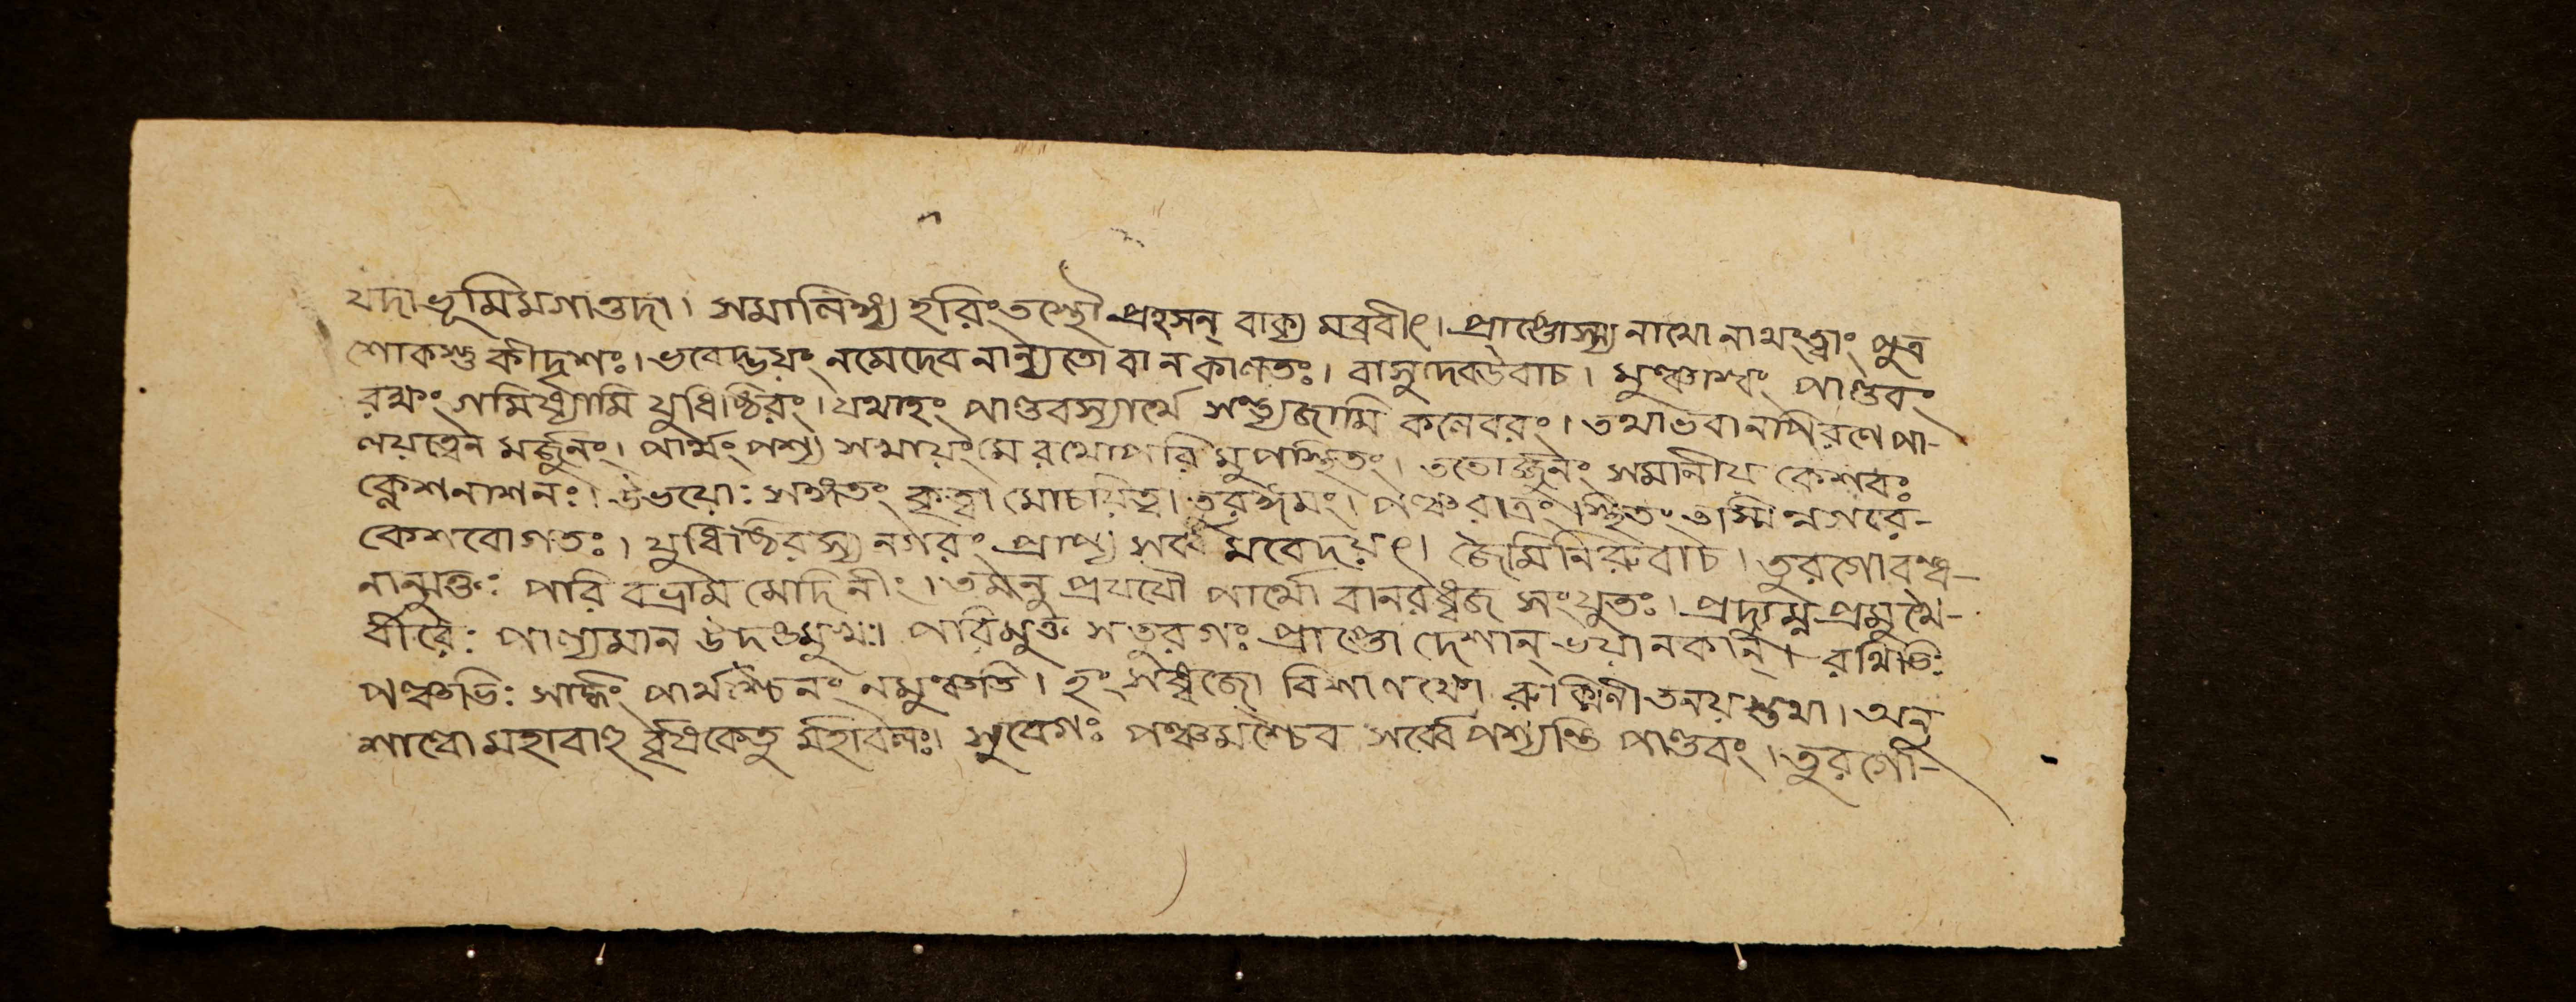 যদা ভূমিমগাত্তদা। সমালিঙ্গ্য হরিং তস্থৌ প্রহসন্ বাক্য মব্রবীৎ। প্রাপ্তোস্য নাথো নাথং ত্বাং পুত্র
শোকস্তু কীদৃশঃ। ভবেদ্ভয়ং নমেদেব নান্যতো বা ন কালতঃ। বাসুদেব উবাচ। মুঞ্চাশ্বং পাণ্ডবং
রক্ষং গমিষ্যামি যুধিষ্ঠিরং। যথাহং পাণ্ডবস্যার্থে সন্ত্যজামি কলেবরং। তথা ভবানপি রণে পা-
লয়ত্বেন মর্জুনং। পার্থং পশ্য সখায়ং মে রথোপরি মুপস্থিতং। ততোর্জুনং সমানীয় কেশবঃ
ক্লেশনাশনঃ। উভয়োঃ সঙ্গতং কৃত্বা মোচয়িত্বা তুরঙ্গমং। পঞ্চরাত্রং স্থিতং তস্মিন্নগরে-
কেশবোগতঃ। যুধিষ্ঠিরস্য নগরং প্রাপ্য সর্ব্ব মবেদয়ৎ। জৈমিনিরুবাচ। তুরগোবন্ধ-
নান্মুক্তঃ পরি বভ্রাম মেদিনীং। তমনু প্রযযৌ পার্থো বানরধ্বজ সংযুতঃ। প্রদ্যুম্ন প্রমুখৈ-
র্বীরৈঃ পাল্যমান উদঙমুখঃ। পরিমুক্ত সতুরগঃ প্রাপ্তো দেশান্ ভয়ানকান্। রথিভিঃ
পঞ্চভিঃ সার্দ্ধং পার্থশ্চৈনং নমুঞ্চতি। হংসধ্বজো বিশালাখ্যো রুক্মিনীতনয়স্তথা। অনু
শাল্বো মহাবাহু র্বৃষকেতু র্মহাবলঃ। সুবেগঃ পঞ্চমশ্চৈব সর্ব্বে পশ্যন্তি পাণ্ডবং। তুরগো-